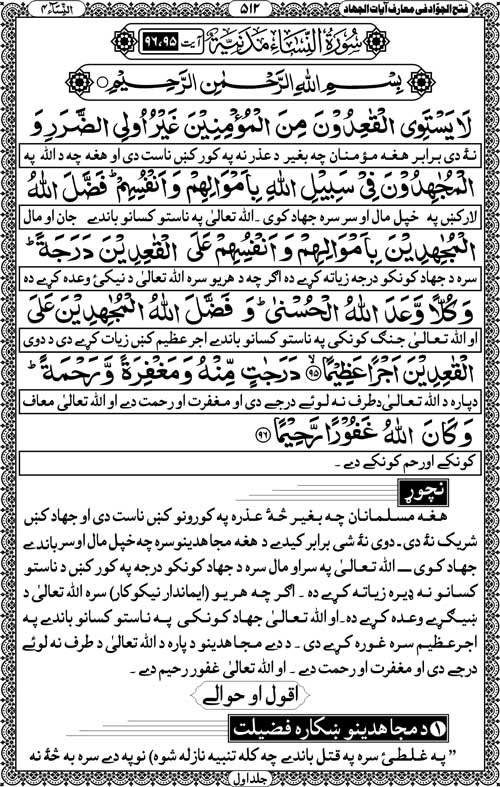 النسآء ۴ ۵۱۲ فتح الجوّاد فی معارف آیات الجهاد
سُوْرَةُ النِّسَآءِ مَدَنِيَّةٌ آیت ۹۵، ۹۶
بِسْمِ اللهِ الرَّحْمٰنِ الرَّحِيْمِ
لَا يَسْتَوِى الْقٰعِدُوْنَ مِنَ الْمُؤْمِنِيْنَ غَيْرُ اُولِى الضَّرَرِ وَ
نهٔ دی برابر هغه مؤمنان چه بغیر د عذر نه په کور کښ ناست دی او هغه چه د الله په
الْمُجٰهِدُوْنَ فِىْ سَبِيْلِ اللهِ بِاَمْوَالِهِمْ وَاَنْفُسِهِمْ ؕ فَضَّلَ اللهُ
لار کښ په خپل مال او سر سره جهاد کوی ۔ الله تعالیٰ په ناستو کسانو باندے جان او مال
الْمُجٰهِدِيْنَ بِاَمْوَالِهِمْ وَاَنْفُسِهِمْ عَلَى الْقٰعِدِيْنَ دَرَجَةً ؕ
سره د جهاد کونکو درجه زیاته کړے ده اگر چه د هریو سره الله تعالیٰ د نیکئ وعده کړے ده
وَكُلًّا وَّعَدَ اللهُ الْحُسْنٰى ؕ وَ فَضَّلَ اللهُ الْمُجٰهِدِيْنَ عَلَى
او الله تعالیٰ جنگ کونکی په ناستو کسانو باندے اجر عظیم کښ زیات کړے دی د دوی
الْقٰعِدِيْنَ اَجْرًا عَظِيْمًا ۙ۹۵ دَرَجٰتٍ مِّنْهُ وَمَغْفِرَةً وَّرَحْمَةً ؕ
دپاره د الله تعالیٰ د طرف نه لوئے درجے دی او مغفرت او رحمت دے او الله تعالیٰ معاف
وَ كَانَ اللهُ غَفُوْرًا رَّحِيْمًا ۹۶
کونکے اور حم کونکے دے ۔
نچوړ
هغه مسلمانان چه بغیر څهٔ عذره په کورونو کښ ناست دی او جهاد کښ
شریک نهٔ دی ۔ دوی نهٔ شی برابر کیدے د هغه مجاهدینو سره چه خپل مال او سر باندے
جهاد کوی — الله تعالیٰ په سر او مال سره د جهاد کونکو درجه په کور کښ د ناستو
کسانو نه ډیره زیاته کړے ده ۔ اگر چه هریو (ایماندار نیکوکار) سره الله تعالیٰ د
ښیګړے وعده کړے ده ۔ او الله تعالیٰ جهاد کونکی په ناستو کسانو باندے په
اجر عظیم سره غوره کړے دی ۔ د دے مجاهدینو د پاره د الله تعالیٰ د طرف نه لوئے
درجے دی او مغفرت او رحمت دے ۔ او الله تعالیٰ غفور رحیم دے ۔
اقول او حوالے
۱ د مجاهدینو ښکاره فضیلت
” په غلطئ سره په قتل باندے چه کله تنبیه نازله شوه) نو په دے سره به څهٔ نه
جلد اول